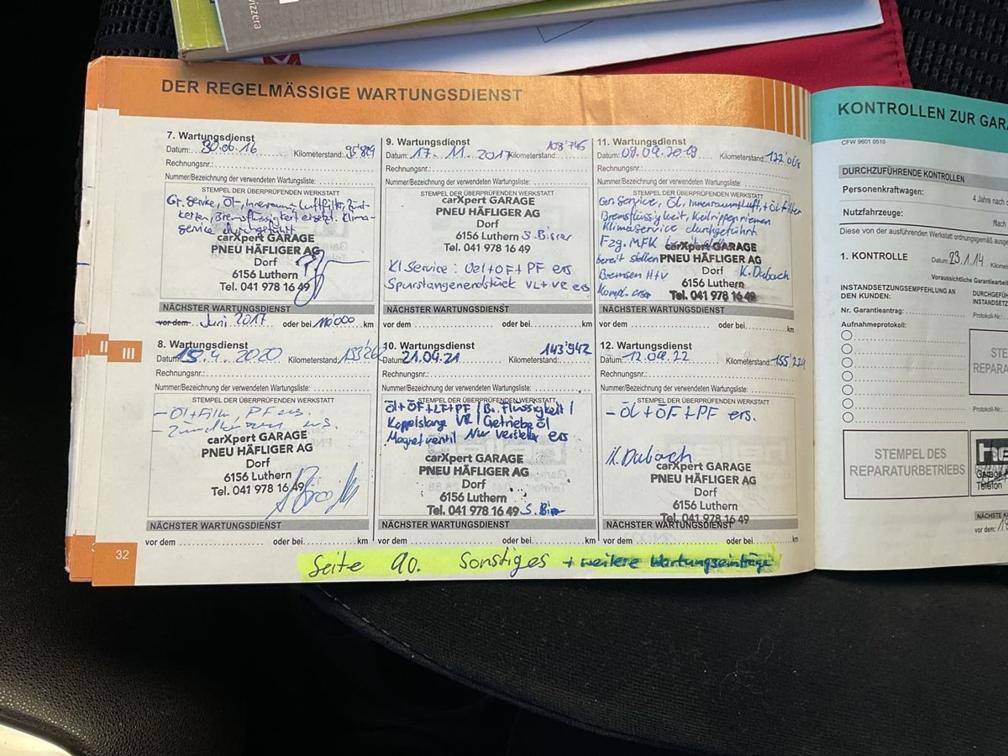 DER REGELMÄSSIGE WARTUNGSDIENST
7. Wartungsdienst
Datum: 30.06.16 Kilometerstand: 95'829
Rechnungsnr.:
Nummer/Bezeichnung der verwendeten Wartungsliste:
STEMPEL DER ÜBERPRÜFENDEN WERKSTATT
Gr. Service, Öl-, Innenraum, Luftfilter, Zünd-
kerzen, Bremsflüssigkeit ersetzt. Klima-
service durchgeführt
carXpert GARAGE
PNEU HÄFLIGER AG
Dorf
6156 Luthern
Tel. 041 978 16 49
NÄCHSTER WARTUNGSDIENST
vor dem Juni 2017 oder bei 110000 km
9. Wartungsdienst
Datum: 17. 11. 2017 Kilometerstand:
Rechnungsnr.:
Nummer/Bezeichnung der verwendeten Wartungsliste:
STEMPEL DER ÜBERPRÜFENDEN WERKSTATT
carXpert GARAGE
PNEU HÄFLIGER AG
Dorf
6156 Luthern
Tel. 041 978 16 49
Kl Service: Oel+OF+PF ers
VL+VR ers
NÄCHSTER WARTUNGSDIENST
vor dem oder bei km
11. Wartungsdienst
Datum: Kilometerstand:
Rechnungsnr.:
Nummer/Bezeichnung der verwendeten Wartungsliste:
STEMPEL DER ÜBERPRÜFENDEN WERKSTATT
Gr. Service, Öl, Innenraumluft, + öl filter
Bremsflüssigkeit, Keilrippenriemen
Klimaservice durchgeführt
Fzg. MFK
bereit stellen
Bremsen H+V
carXpert GARAGE
PNEU HÄFLIGER AG
Dorf K. Dubach
6156 Luthern
Tel. 041 978 16 49
NÄCHSTER WARTUNGSDIENST
vor dem oder bei km
8. Wartungsdienst
Datum: 15.4.2020 Kilometerstand:
Rechnungsnr.:
Nummer/Bezeichnung der verwendeten Wartungsliste:
STEMPEL DER ÜBERPRÜFENDEN WERKSTATT
- Öl + Filter, PF ers.
- Zündkerzen ers.
carXpert GARAGE
PNEU HÄFLIGER AG
Dorf
6156 Luthern
Tel. 041 978 16 49
NÄCHSTER WARTUNGSDIENST
vor dem oder bei km
10. Wartungsdienst
Datum: 21.04.21 Kilometerstand: 143'942
Rechnungsnr.:
Nummer/Bezeichnung der verwendeten Wartungsliste:
STEMPEL DER ÜBERPRÜFENDEN WERKSTATT
Öl+ÖF+LF+PF / Br. Flüssigkeit /
Koppelstange VR / Getriebe öl
Magnetventil ers
carXpert GARAGE
PNEU HÄFLIGER AG
Dorf
6156 Luthern
Tel. 041 978 16 49
NÄCHSTER WARTUNGSDIENST
vor dem oder bei km
12. Wartungsdienst
Datum: Kilometerstand:
Rechnungsnr.:
Nummer/Bezeichnung der verwendeten Wartungsliste:
STEMPEL DER ÜBERPRÜFENDEN WERKSTATT
- Öl + ÖF + PF ers.
K. Dubach
carXpert GARAGE
PNEU HÄFLIGER AG
Dorf
6156 Luthern
Tel. 041 978 16 49
NÄCHSTER WARTUNGSDIENST
vor dem oder bei km
Seite 90. Sonstiges + weitere Wartungseinträge
32
II
III
KONTROLLEN ZUR GAR
DURCHZUFÜHRENDE KONTROLLEN
Personenkraftwagen:
4 Jahre nach
Nutzfahrzeuge:
1. KONTROLLE Datum: 23.1.14
INSTANDSETZUNGSEMPFEHLUNG AN
DEN KUNDEN:
Nr. Garantieantrag:
Aufnahmeprotokoll:
STEMPEL DES
REPARATURBETRIEBS
STE
REPARA
Telefon